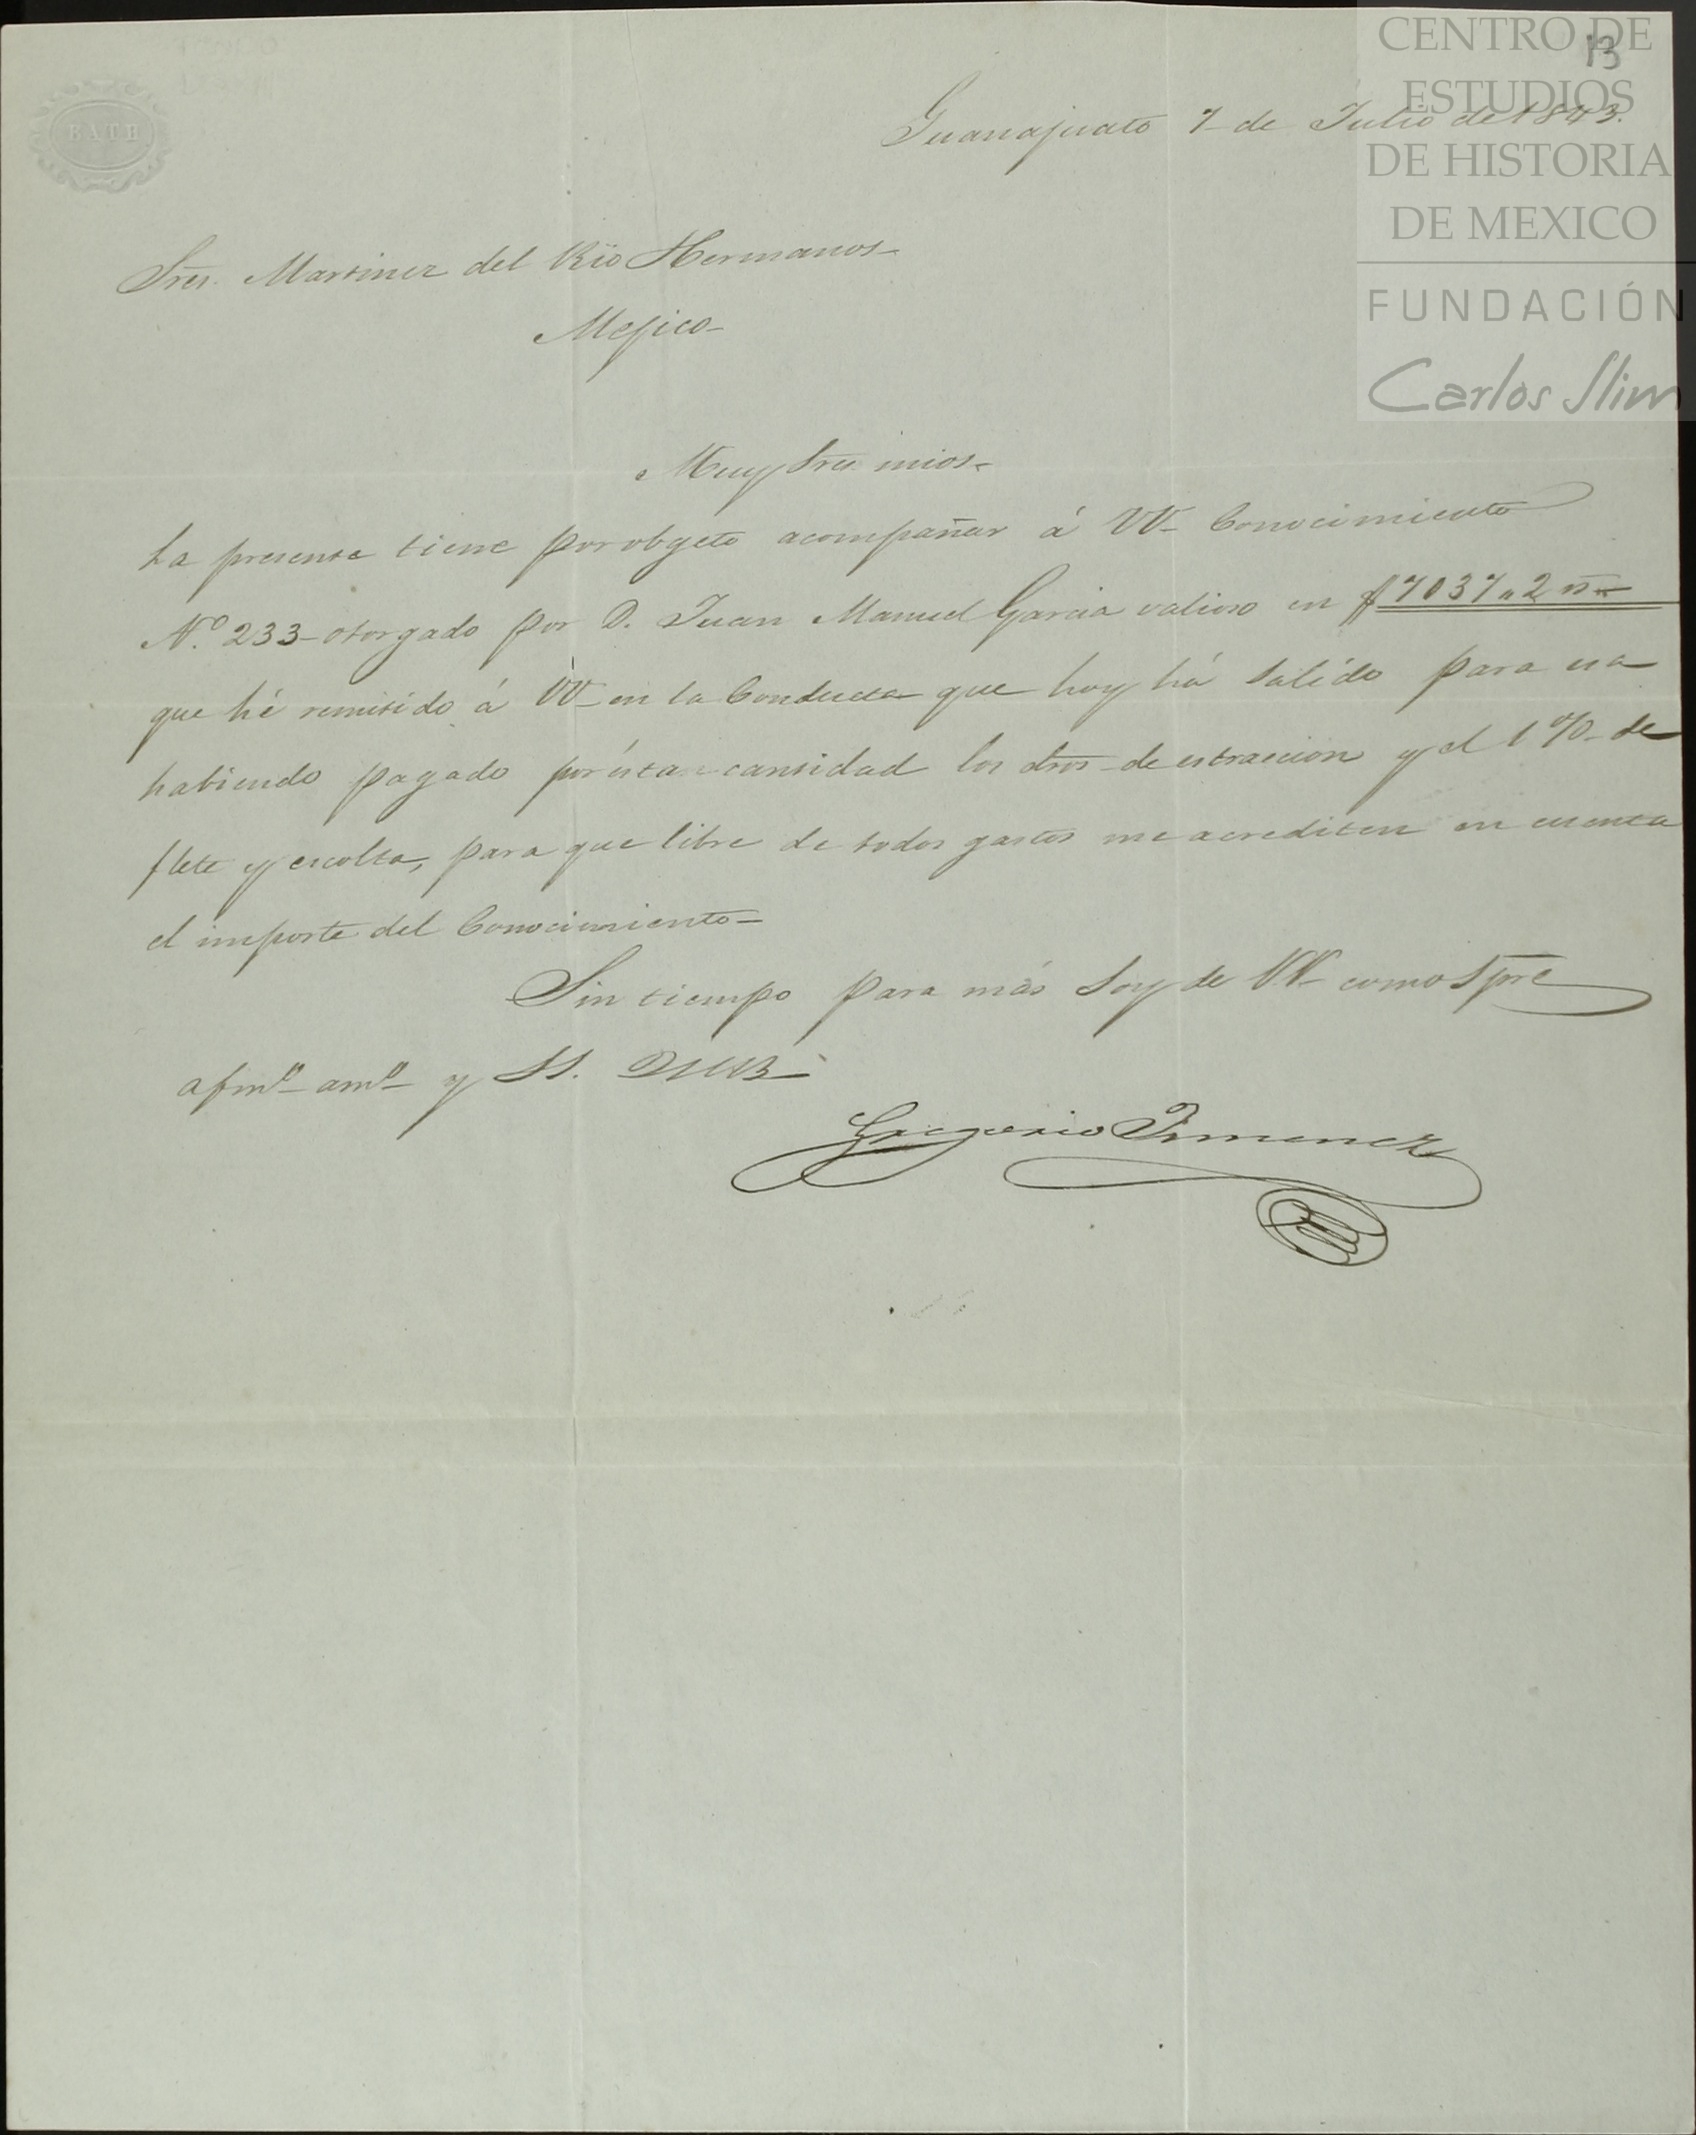 BATH
13
CENTRO DE
ESTUDIOS
DE HISTORIA
DE MEXICO
FUNDACIÓN
Carlos Slim
Guanajuato 7 de Julio de 1843.
Sres. Martinez del Rio Hermanos
Mejico
Muy Sres. mios
La presente tiene por obgeto acompañar á VV. Conocimiento
N.º 233 otorgado por D. Juan Manuel Garcia valioso en $7037"2 rs
que hé remitido á VV. en la Conducta que hoy há salido para esa
habiendo pagado por ésta cantidad los dros de estraccion y el 1 % de
flete y escolta, para que libre de todos gastos me acrediten en cuenta
el importe del Conocimiento
Sin tiempo para más soy de VV. como Spre
afmº amº y SS. QSMB
Gregorio Jimenez